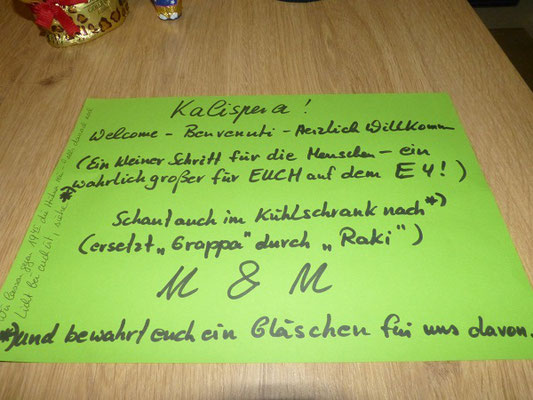 Kalispera!
Welcome - Benvenuti - Herzlich Willkomm
(Ein kleiner Schritt für die Menschen - ein
wahrlich großer für EUCH auf dem E4!)
Schaut auch im Kühlschrank nach *)
(ersetzt „Grappa" durch „Raki")
M & M
*) und bewahrt euch ein Gläschen für uns davon.
Licht bei euch ist, siehe *)